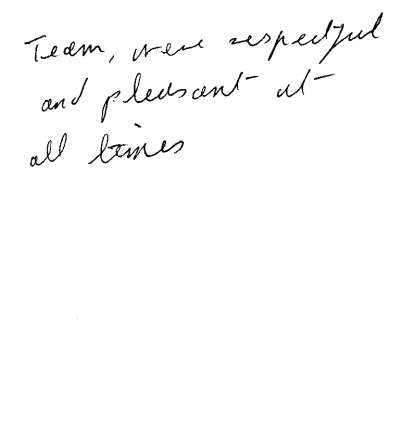 Team, were respectful
and pleasant at
all times